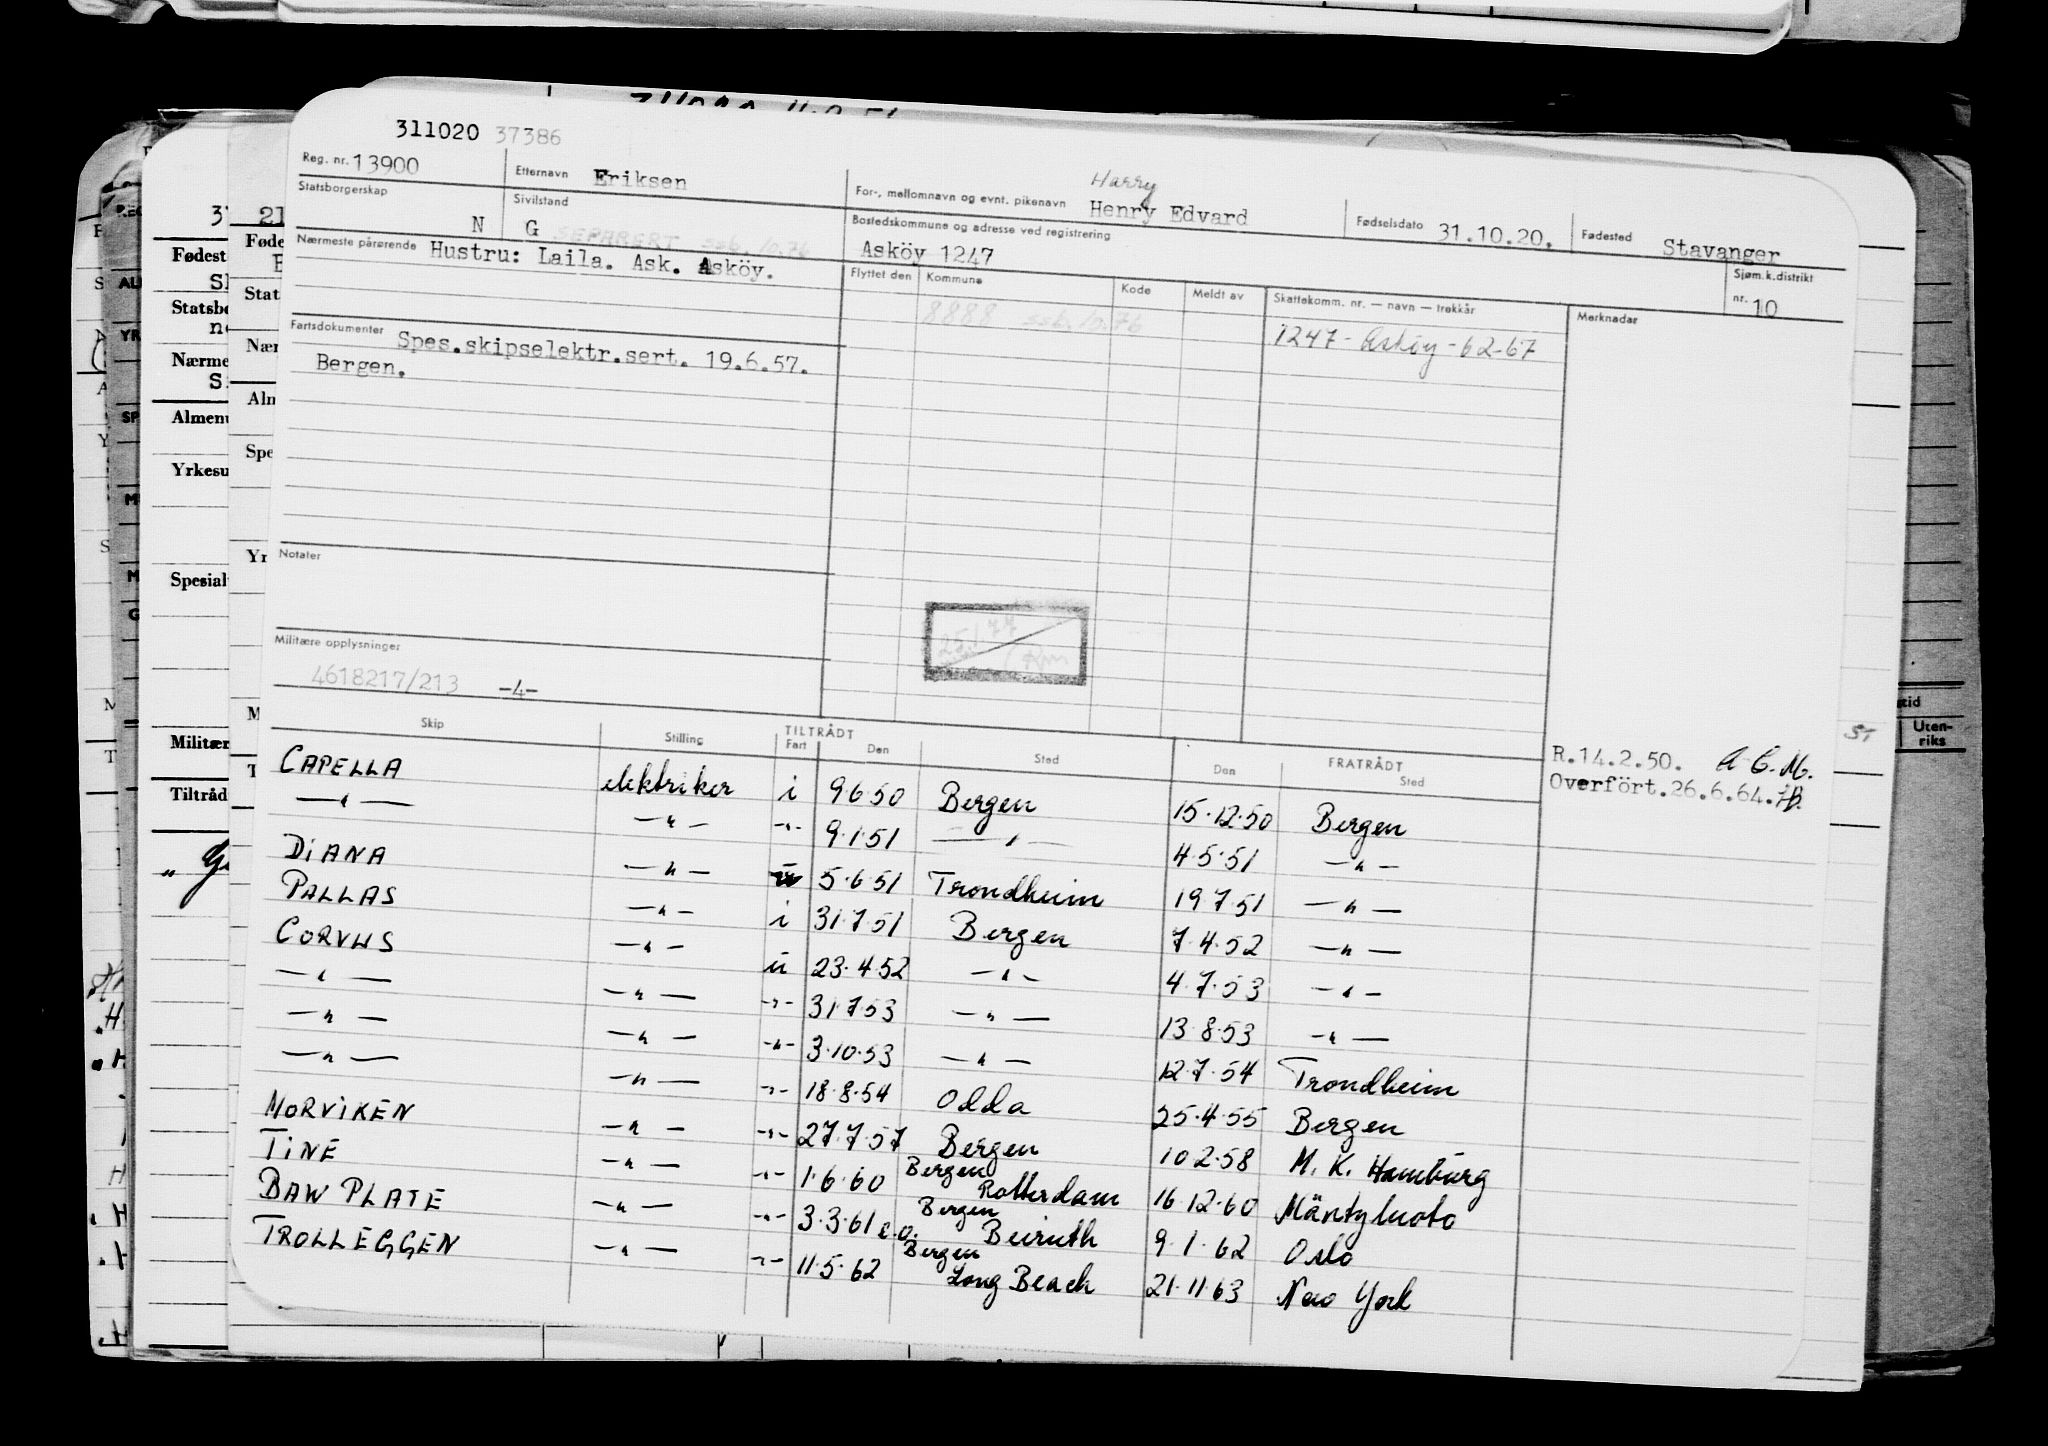 311020 37386
Reg. nr. 13900 Etternavn Eriksen For-, mellomnavn og evnt. pikenavn Harry Henry Edvard Fødselsdato 31.10.20. Fødested Stavanger
Statsborgerskap N Sivilstand G SEPARERT ssb. 10.76 Bostedskommune og adresse ved registrering Asköy 1247 Sjøm.k.distrikt nr. 10
Nærmeste pårørende Hustru: Laila. Ask. Asköy.
Flyttet den Kommune Kode Meldt av Skattekomm. nr. — navn — trekkår Merknader
8888 ssb. 10.76 1247 - Asköy - 62-67
Fartsdokumenter Spes.skipselektr.sert. 19.6.57.
Bergen.
Notater
Militære opplysninger
4618217/213 -4-
Skip Stilling TILTRÅDT Fart Den Sted FRATRÅDT Den Sted
R.14.2.50. A C. M.
Overfört.26.6.64.
CAPELLA elektriker i 9.6.50 Bergen 15.12.50 Bergen
—"— —"— -"- 9.1.51 —"— 4.5.51 —"—
DIANA —"— u 5.6.51 Trondheim 19.7.51 —"—
PALLAS —"— i 31.7.51 Bergen 7.4.52 —"—
CORVUS —"— u 23.4.52 —"— 4.7.53 —"—
—"— —"— -"- 31.7.53 —"— 13.8.53 —"—
—"— —"— -"- 3.10.53 —"— 12.7.54 Trondheim
—"— —"— -"- 18.8.54 Odda 25.4.55 Bergen
MORVIKEN —"— -"- 27.7.57 Bergen 10.2.58 M. K. Hamburg
TINE —"— -"- 1.6.60 Bergen Rotterdam 16.12.60 Mäntyluoto
BAW PLATE —"— -"- 3.3.61 e.o. Bergen Beiruth 9.1.62 Oslo
TROLLEGGEN —"— -"- 11.5.62 Bergen Long Beach 21.11.63 New York
Fødest
Statsb
Nærme
Almenu
Yrkesu
Spesial
Militær
Tiltråd
Uten-
riks